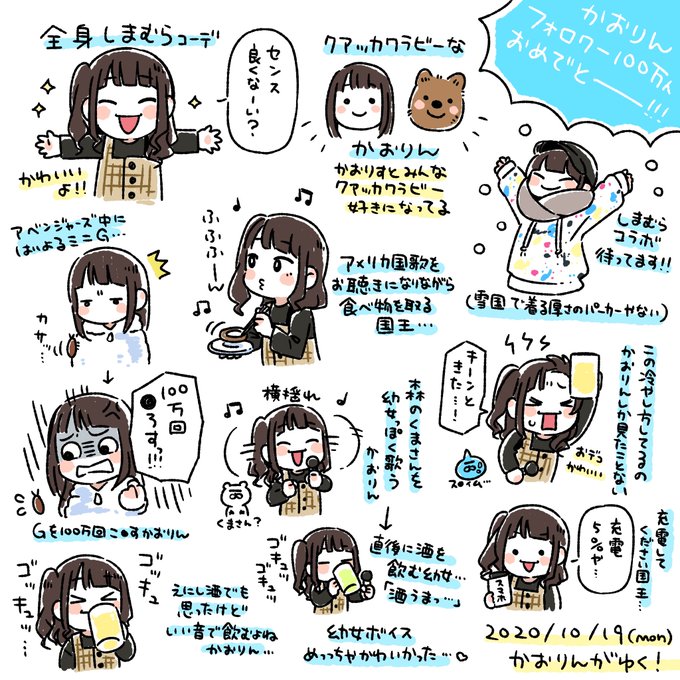 かおりん
フォロワー100万人
おめでとーーー!!!
全身しまむらコーデ
センス
良くなーい?
かわいい
よ!!
クアッカワラビーな
かおりん
かおりすとみんな
クアッカワラビー
好きになってる
しまむら
コラボ
待ってます!!
(雪国で着る厚さのパーカーやない)
アベンジャーズ中に
はいよるミニG…
カサ…
100万回
●ろすっ!!!
Gを100万回こ●すかおりん
ふふふふーん
アメリカ国歌を
お聴きになりながら
食べ物を取る
国王…
横揺れ
くまさん?
森のくまさんを
幼女っぽく歌う
かおりん
直後に酒を
飲む幼女…
「酒うまっ…」
幼女ボイス
めっちゃかわいかった…
キーンと
きた…!
この冷やし方してるの
かおりんしか見たことない
おデコ
かわいい
スライム
充電して
ください国王…
充電
5%や…
スマホ
ゴッキュ
ゴッキュ
えにし酒でも
思ったけど
いい音で飲むよね
かおりん…
2020/10/19(mon)
かおりんがゆく!